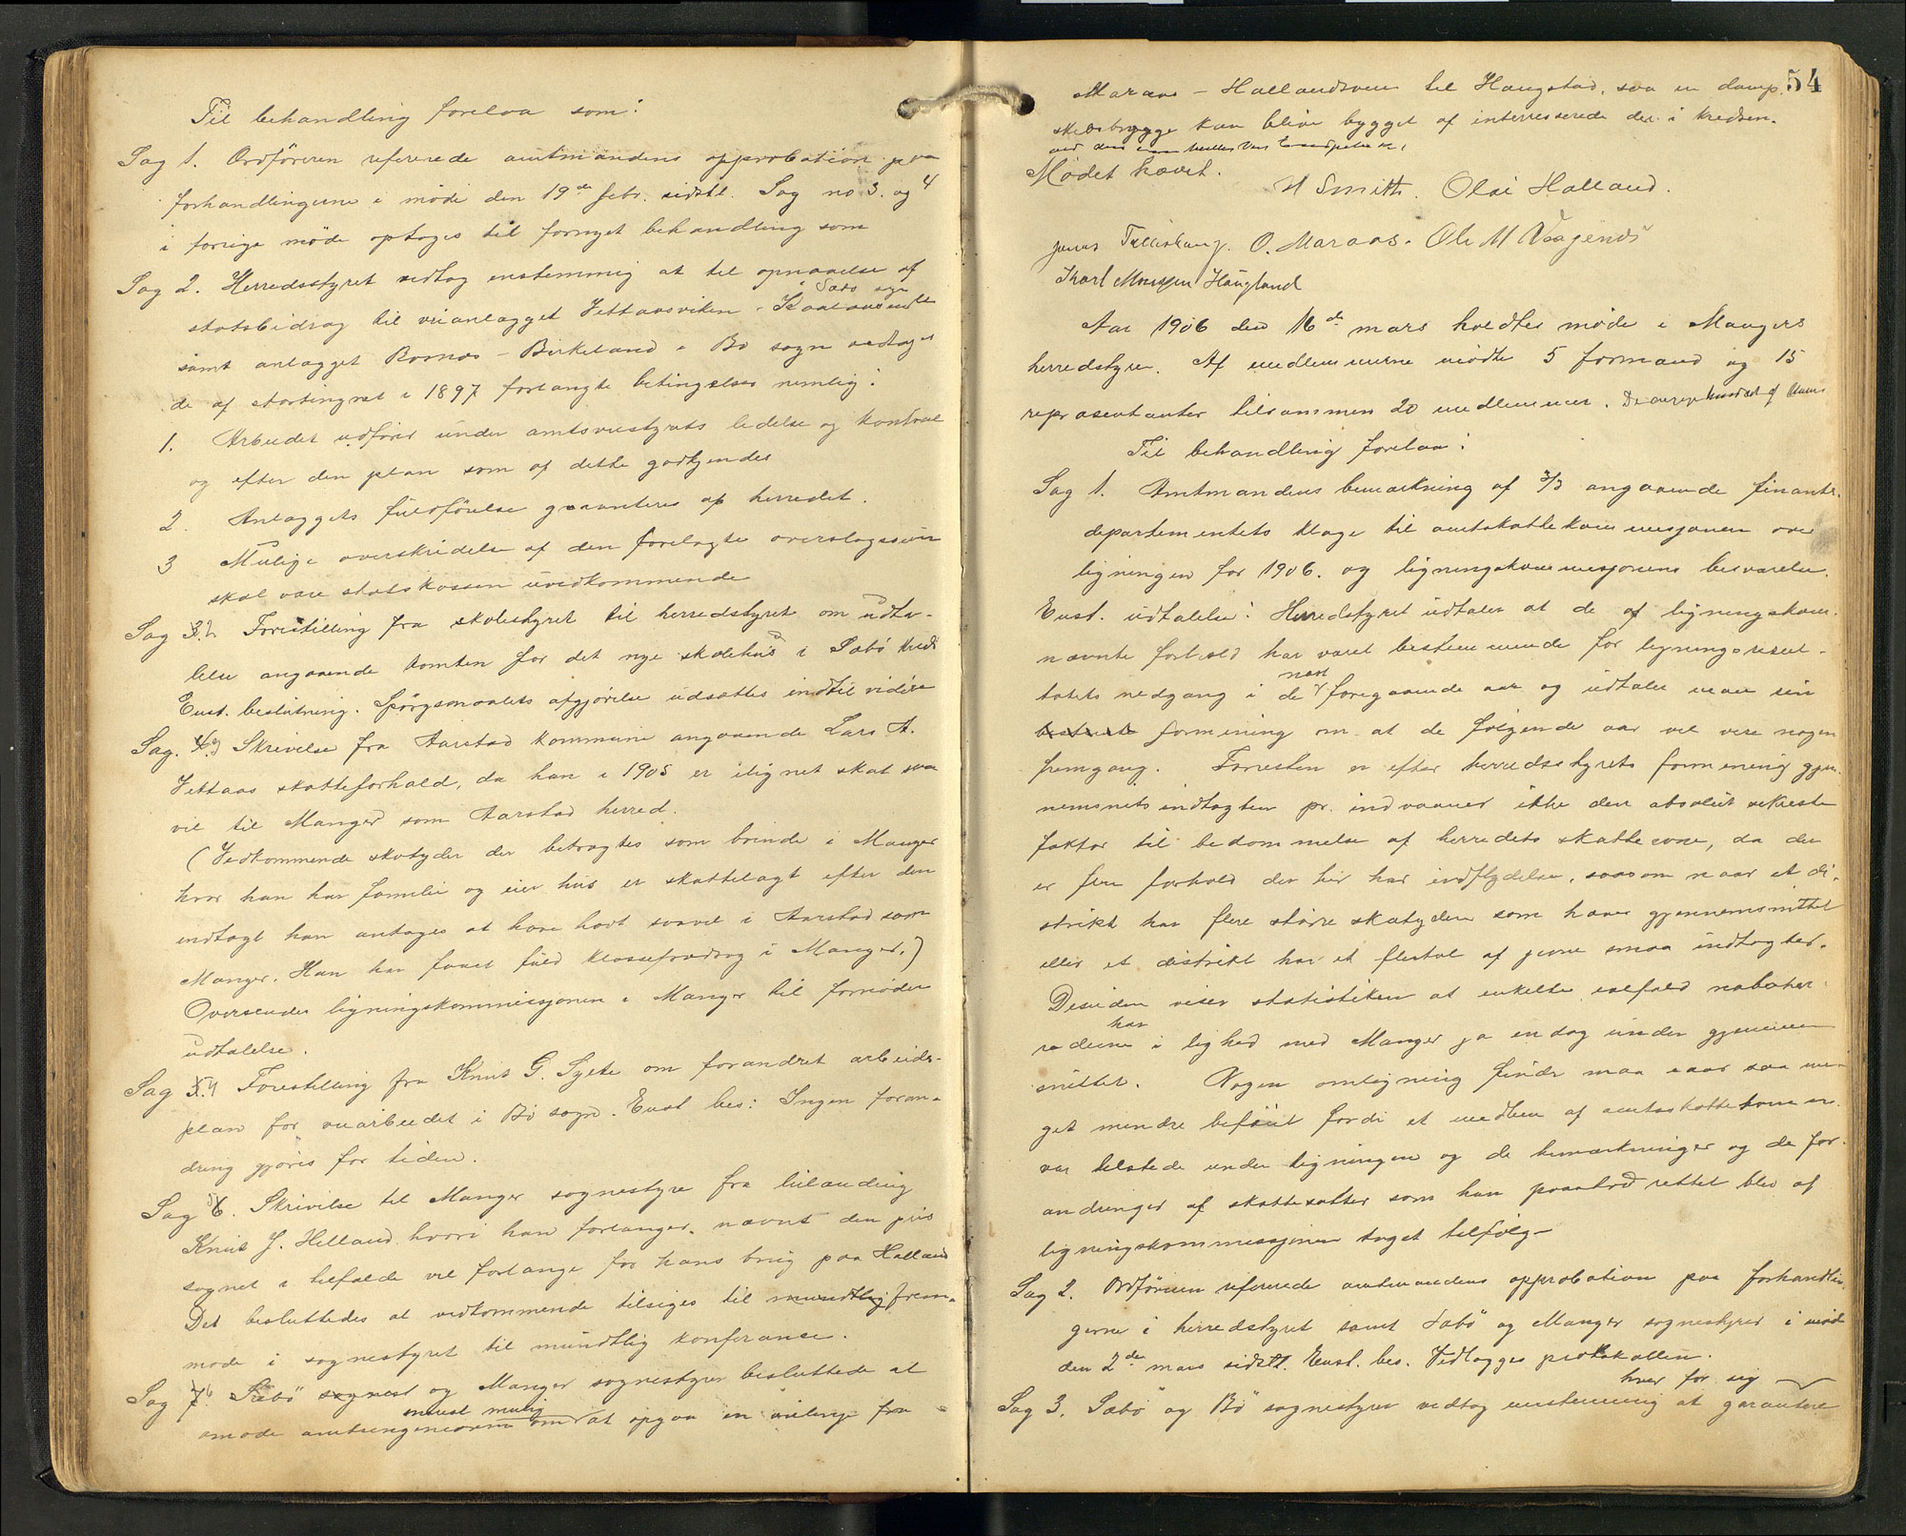 Til behandling forelaa som:
Sag 1. Ordføreren refererede amtmandens approbation paa
forhandlingerne i møde den 19de febr. sidstl. Sag no 3. og 4
i forrige møde optages til fornyet behandling som
Sag 2. Herredsstyret vedtog enstemmig at til opnaaelse af
statsbidrag til veianlægget Vettaasviken -
samt anlægget Bornæs - Birkeland i Bø sogn vedtages
de af stortinget i 1897 forlangte betingelser nemlig:
1. Arbeidet udføres under amtsveistyrets ledelse og kontrol
og efter den plan som af dette godkjendes
2. Anlæggets fuldførelse garanteres af herredet.
3 Mulige overskridelse af den forelagte overslagssum
skal være statskassen uvedkommende
Sag 3. Forestilling fra skolestyret til herredstyret om udta-
lelse angaaende tomten for det nye skolehus i Sæbø kreds
Enst. beslutning. Spørgsmaalets afgjørelse udsættes indtil videre
Sag. Skrivelse fra Aarstad kommune angaaende Lars A.
Vettaas skatteforhold, da han i 1905 er ilignet skat saa
vel til Manger som Aarstad herred.
(Vedkommende skatyder der betragtes som boende i Manger
hvor han har familie og eier hus er skattelagt efter den
indtægt han antages at have havt saavel i Aarstad som
Manger. Han har faaet fuld klassefradrag i Manger.)
Oversendes ligningskommissjonen i Manger til fornøden
udtalelse.
Sag Forestilling fra Knut G. Sylte om forandret arbeids-
plan for veiarbeidet i Bø sogn. Enst bes: Ingen foran-
dring gjøres for tiden.
Sag 6. Skrivelse til Manger sognestyre fra
Knut J. Helland hvori han forlanger nævnt den pris
sognet i tilfælde vil forlange for hans brug paa Halland
Det besluttedes at vedkommende tilsiges til mundtlig frem-
møde i sognestyret til mundtlig konferance.
Sag 7. Sæbø sognest og Manger sognestyrer besluttede at
snarest mulig
anmode amtsingeniøren om at opgaa en veilinje fra
54
Maraas - Hallandsveien til Haugstad, saa en damp
skibsbrygge kan blive bygget af interesserede der i kredsen.
Mødet hævet.
H Smith. Olai Halland.
O. Maraas. Ole M Vaagenes
Karl Monssen Haugland
Aar 1906 den 16de mars holdtes møde i Mangers
herredstyre. Af medlemmerne mødte 5 formænd og 15
repræsentanter tilsammen 20 medlemmer.
Til behandling forelaa:
Sag 1. Amtmandens bemærkning af 3/3 angaaende finants-
departementets klage til amtskattekommisjonen over
ligningen for 1906. og ligningskommisjonens besvarelse.
Enst. udtalelse: Herredstyret udtaler at de af ligningskom.
nævnte forhold har været bestemmende for ligningsresul-
tatets nedgang i de næst foregaaende aar og udtaler man sin
formening om at de følgende aar vil vise nogen
fremgang. Forresten er efter herredsstyrets formening gjen-
nemsnitsindtægten pr. indvaaner ikke den absolut sikreste
faktor til bedømmelse af herredets skatteevne, da der
er flere forhold der her har indflydelse, saasom naar et di-
strikt har flere større skatydere som hæver gjennemsnittet
eller et distrikt har et flertal af jevne smaa indtægter.
Desuden viser statistiken at enkelte ialfald naboher-
rederne har i lighed med Manger ja endog under gjennem
snittet. Nogen omligning finder man iaar saa me-
get mindre beføiet fordi et medlem af amtsskattekomm.
var tilstede under ligningen og de bemærkninger og de for-
andringer af skattesatser som han paaankede rettet blev af
ligningskommissjonen taget tilfølge
Sag 2. Ordføreren refererede amtmandens approbation paa forhandlin
gerne i herredstyret samt Sæbø og Manger sognestyrer i møde
den 2de mars sidstl. Enst. bes. Vedlægges protokollen.
hver for sig
Sag 3. Sæbø og Bø sognestyrer vedtog enstemmig at garantere